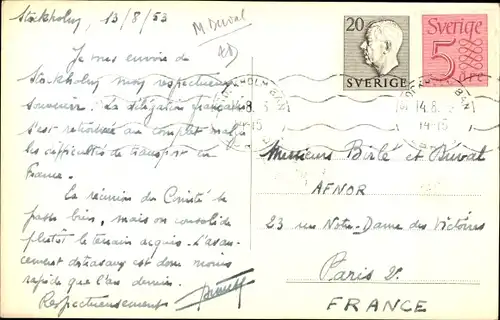 Stockholm, 13/8/53
M Duval
Je vous envoie de
Stockholm mon respectueux
souvenir. La délégation française
s'est retrouvée au complet malgré
les difficultés de transport en
France.
La réunion du Comité se
passe bien, mais on consolide
plutôt le terrain acquis. L'avan-
cement des travaux est donc moins
rapide que l'an dernier.
Respectueusement
20
SVERIGE
Sverige
5
öre
14.8.
14-15
Messieurs Birlé et Duval
AFNOR
23 rue Notre-Dame des Victoires
Paris 2.
FRANCE